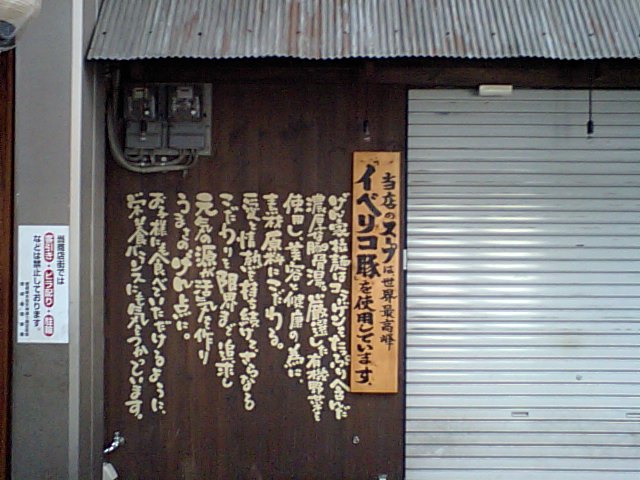 当店のスープは世界最高峰
「イベリコ豚」を使用しています。
げん家拉麺はコラーゲンをたっぷり含んだ
濃厚な豚骨湯。厳選した有機野菜を
使用し、美容と健康の為に、
素材、原料にこだわる。
愛と情熱を持ち続け、さらなる
こだわりを限界まで追求し
元気の源が活気を作り
うまさのげん点に。
お子様にも食べていただけるように、
栄養バランスにも気をつかっています。
当商店街では
客引き・ビラ配り・駐輪
などは禁止しております。